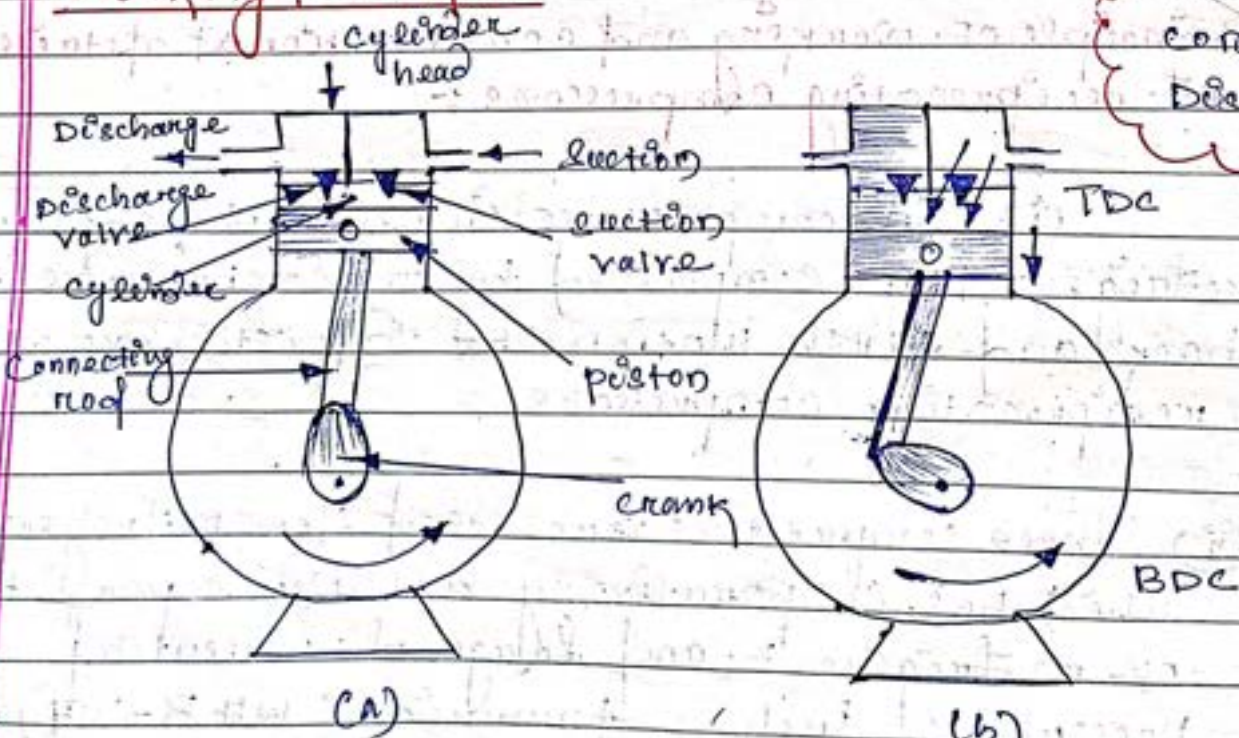 cylinder
head
Discharge
Suction
Discharge
valve
Suction
valve
Cylinder
Connecting
rod
piston
crank
(A)
TDC
BDC
(b)
Con
Dis